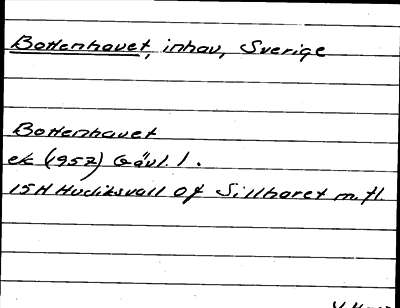 Bottenhavet, inhav, Sverige
Bottenhavet
ek (1952) Gävl. l.
15H Hudiksvall 0f Sillharet m. fl.